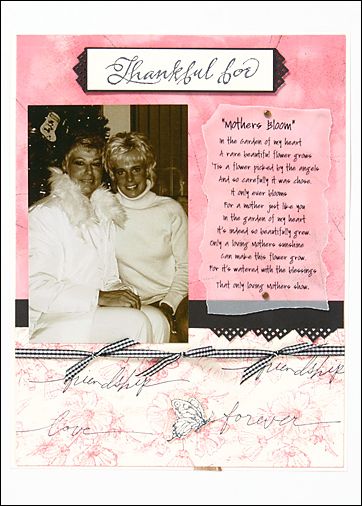 Thankful for
"Mothers Bloom"
In the garden of my heart
A rare beautiful flower grows
'Tis a flower picked by the angels
And so carefully it was chose.
It only ever blooms
For a mother just like you
In the garden of my heart
It's indeed so beautifully grew.
Only a loving Mothers sunshine
Can make this flower grow.
For it's watered with the blessings
That only loving Mothers show.
friendship
friendship
love
forever